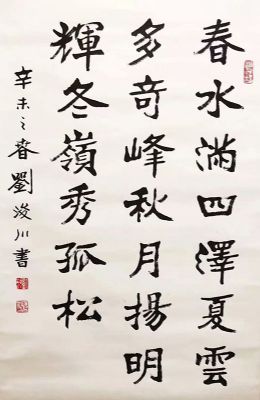 春水滿四澤夏雲
多奇峰秋月揚明
輝冬嶺秀孤松
辛未之春劉浚川書